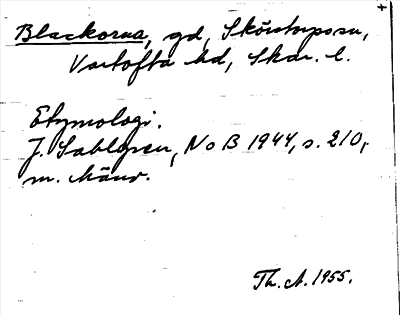 Blackorna, gd, Skörstorps sn,
Vartofta hd, Skar. l.
Etymologi.
J. Sahlgren, NoB 1944, s. 210,
m. hänv.
Th. A. 1955.